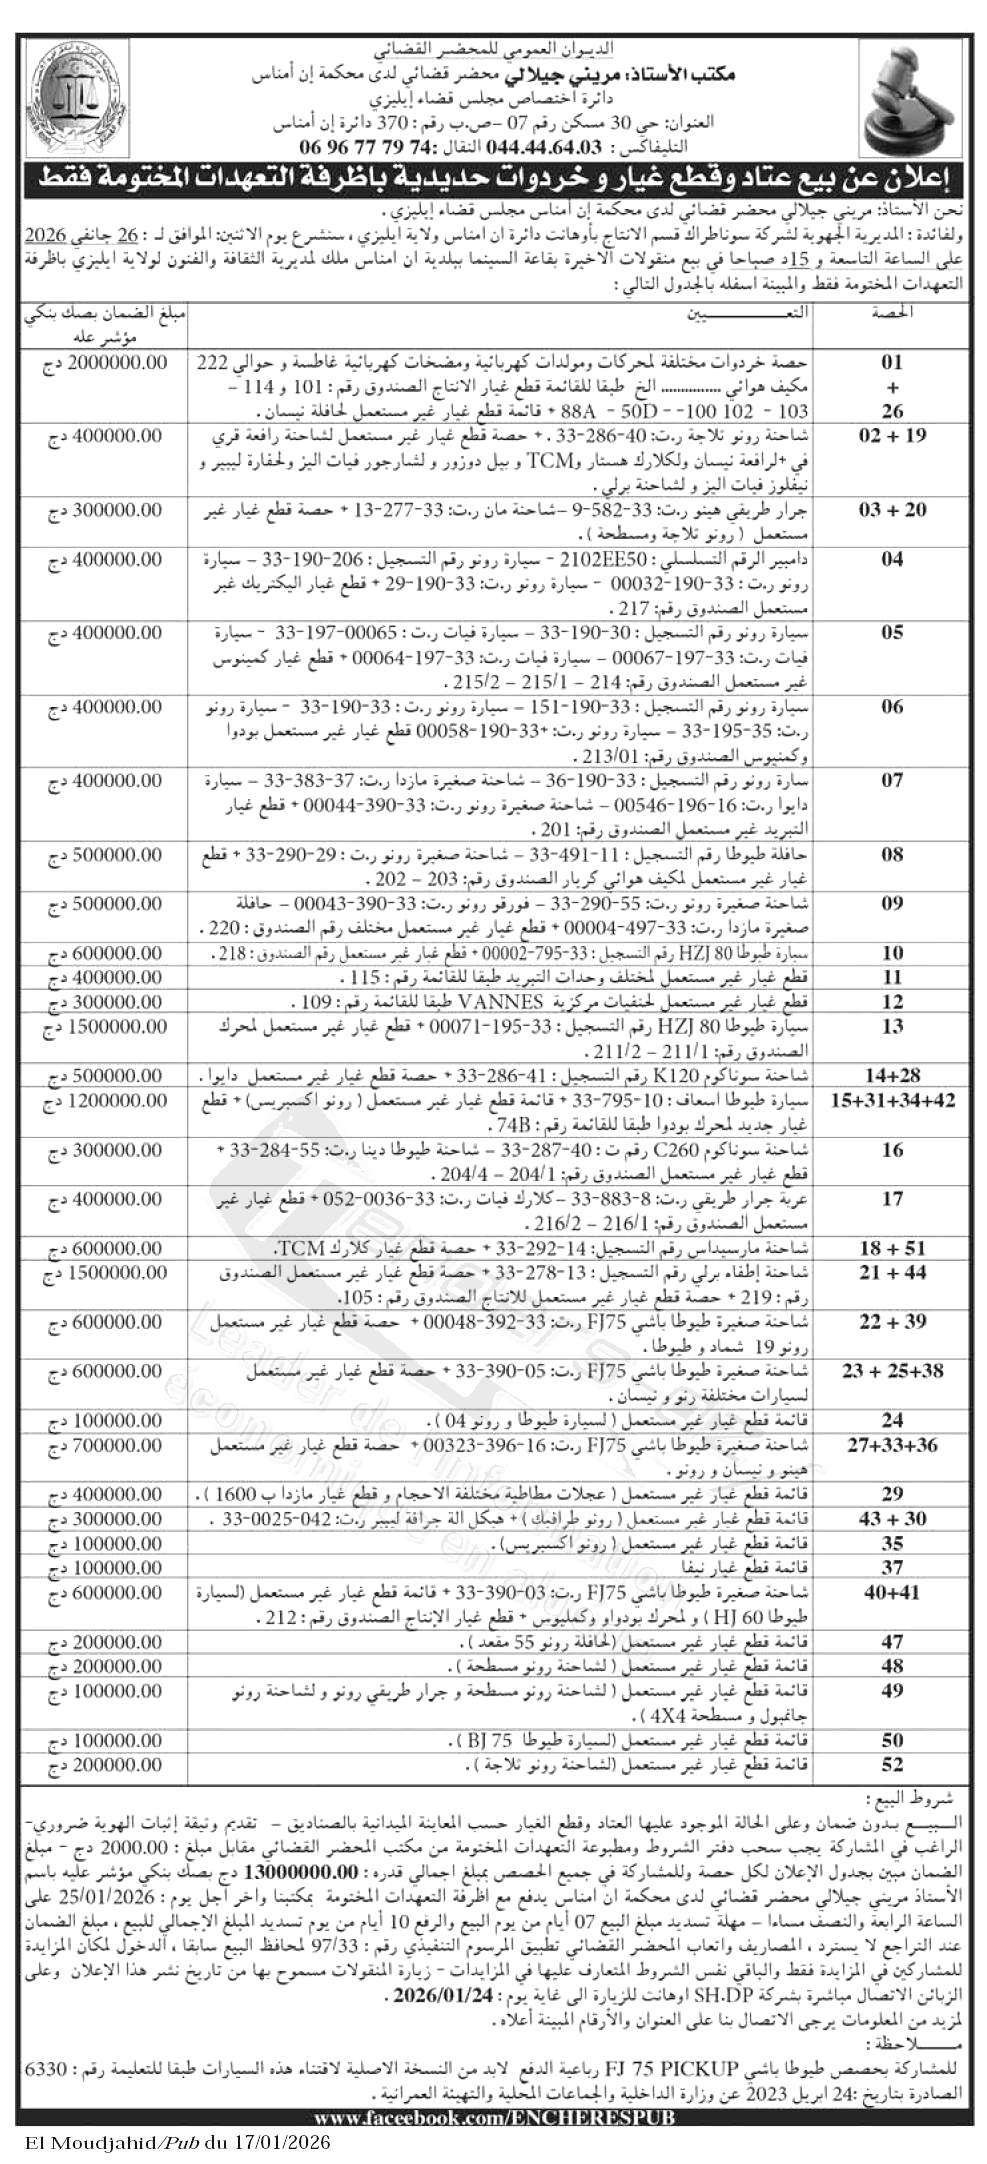 الديوان العمومي للمحضر القضائي
مكتب الأستاذ: مريني جيلالي محضر قضائي لدى محكمة إن أمناس
دائرة اختصاص مجلس قضاء إيليزي
العنوان: حي 30 مسكن رقم 07 -ص.ب رقم: 370 دائرة إن أمناس
التليفاكس: 044.44.64.03 النقال: 06 96 77 79 74
إعلان عن بيع عتاد وقطع غيار و خردوات حديدية باظرفة التعهدات المختومة فقط
نحن الأستاذ: مريني جيلالي محضر قضائي لدى محكمة إن أمناس مجلس قضاء إيليزي.
ولفائدة: المديرية الجهوية لشركة سوناطراك قسم الانتاج بأوهانت دائرة ان امناس ولاية ايليزي، سنشرع يوم الاثنين: الموافق لـ: 26 جانفي 2026
على الساعة التاسعة و 15د صباحا في بيع منقولات الاخيرة بقاعة السينما ببلدية ان امناس ملك لمديرية الثقافة والفنون لولاية ايليزي باظرفة
التعهدات المختومة فقط والمبينة اسفله بالجدول التالي:
الحصة التعـــيين مبلغ الضمان بصك بنكي
مؤشر عله
01 حصة خردوات مختلفة لمحركات ومولدات كهربائية ومضخات كهربائية غاطسة و حوالي 222 2000000.00 دج
+ مكيف هوائي ............... الخ طبقا للقائمة قطع غيار الانتاج الصندوق رقم: 101 و 114 –
26 103 - 102 100-- 50D - 88A + قائمة قطع غيار غير مستعمل لحافلة نيسان.
02 + 19 شاحنة رونو ثلاجة ر.ت: 40-286-33 . + حصة قطع غيار غير مستعمل لشاحنة رافعة قري 400000.00 دج
في +لرافعة نيسان ولكلارك هستار وTCM و بيل دوزور و لشارجور فيات اليز ولحفارة ليبير و
نيفلوز فيات اليز و لشاحنة برلي.
03 + 20 جرار طريقي هينو ر.ت: 33-582-9 –شاحنة مان ر.ت: 33-277-13 + حصة قطع غيار غير 300000.00 دج
مستعمل ( رونو ثلاجة ومسطحة ).
04 دامبير الرقم التسلسلي: 2102EE50 - سيارة رونو رقم التسجيل: 206-190-33 – سيارة 400000.00 دج
رونو ر.ت: 33-190-00032 - سيارة رونو ر.ت: 33-190-29 + قطع غيار اليكتريك غير
مستعمل الصندوق رقم: 217.
05 سيارة رونو رقم التسجيل: 30-190-33 – سيارة فيات ر.ت: 00065-197-33 - سيارة 400000.00 دج
فيات ر.ت: 33-197-00067 – سيارة فيات ر.ت: 33-197-00064 + قطع غيار كمينوس
غير مستعمل الصندوق رقم: 214 – 215/1 – 215/2.
06 سيارة رونو رقم التسجيل: 33-190-151 – سيارة رونو ر.ت: 33-190-33 - سيارة رونو 400000.00 دج
ر.ت: 35-195-33 – سيارة رونو ر.ت: +33-190-00058 قطع غيار غير مستعمل بودوا
وكمنيوس الصندوق رقم: 213/01.
07 سارة رونو رقم التسجيل: 33-190-36 – شاحنة صغيرة مازدا ر.ت: 37-383-33 – سيارة 400000.00 دج
دايوا ر.ت: 16-196-00546 – شاحنة صغيرة رونو ر.ت: 33-390-00044 + قطع غيار
التبريد غير مستعمل الصندوق رقم: 201.
08 حافلة طيوطا رقم التسجيل: 11-491-33 – شاحنة صغيرة رونو ر.ت: 29-290-33 + قطع 500000.00 دج
غيار غير مستعمل لمكيف هوائي كريار الصندوق رقم: 203 – 202.
09 شاحنة صغيرة رونو ر.ت: 55-290-33 – فورقو رونو ر.ت: 33-390-00043 – حافلة 500000.00 دج
صغيرة مازدا ر.ت: 33-497-00004 + قطع غيار غير مستعمل مختلف رقم الصندوق: 220.
10 سيارة طيوطا HZJ 80 رقم التسجيل: 33-795-00002 + قطع غيار غير مستعمل رقم الصندوق: 218. 600000.00 دج
11 قطع غيار غير مستعمل لمختلف وحدات التبريد طبقا للقائمة رقم: 115. 400000.00 دج
12 قطع غيار غير مستعمل لحنفيات مركزية VANNES طبقا للقائمة رقم: 109. 300000.00 دج
13 سيارة طيوطا HZJ 80 رقم التسجيل: 33-195-00071 + قطع غيار غير مستعمل لمحرك 1500000.00 دج
الصندوق رقم: 211/1 – 211/2.
14+28 شاحنة سوناكوم K120 رقم التسجيل: 41-286-33 + حصة قطع غيار غير مستعمل دايوا. 500000.00 دج
15+31+34+42 سيارة طيوطا اسعاف: 10-795-33 + قائمة قطع غيار غير مستعمل ( رونو اكسبريس) + قطع 1200000.00 دج
غيار جديد لمحرك بودوا طبقا للقائمة رقم: 74B.
16 شاحنة سوناكوم C260 رقم ت: 40-287-33 – شاحنة طيوطا دينا ر.ت: 55-284-33 + 300000.00 دج
قطع غيار غير مستعمل الصندوق رقم: 204/1 – 204/4.
17 عربة جرار طريقي ر.ت: 8-883-33 –كلارك فيات ر.ت: 33-0036-052 + قطع غيار غير 400000.00 دج
مستعمل الصندوق رقم: 216/1 – 216/2.
18 + 51 شاحنة مارسيداس رقم التسجيل: 14-292-33 + حصة قطع غيار كلارك TCM. 600000.00 دج
21 + 44 شاحنة إطفاء برلي رقم التسجيل: 13-278-33 + حصة قطع غيار غير مستعمل الصندوق 1500000.00 دج
رقم: 219 + حصة قطع غيار غير مستعمل للانتاج الصندوق رقم: 105.
22 + 39 شاحنة صغيرة طيوطا باشي FJ75 ر.ت: 33-392-00048 + حصة قطع غيار غير مستعمل 600000.00 دج
رونو 19 شماد و طيوطا.
23 + 25+38 شاحنة صغيرة طيوطا باشي FJ75 ر.ت: 05-390-33 + حصة قطع غيار غير مستعمل 600000.00 دج
لسيارات مختلفة رنو و نيسان.
24 قائمة قطع غيار غير مستعمل ( لسيارة طيوطا و رونو 04 ). 100000.00 دج
27+33+36 شاحنة صغيرة طيوطا باشي FJ75 ر.ت: 16-396-00323 + حصة قطع غيار غير مستعمل 700000.00 دج
هينو و نيسان و رونو.
29 قائمة قطع غيار غير مستعمل ( عجلات مطاطية مختلفة الاحجام و قطع غيار مازدا ب 1600 ). 400000.00 دج
43 + 30 قائمة قطع غيار غير مستعمل ( رونو طرافيك ) + هيكل الة جرافة ليبير ر.ت: 042-0025-33 . 300000.00 دج
35 قائمة قطع غيار غير مستعمل ( رونو اكسبريس). 100000.00 دج
37 قائمة قطع غيار نيفا 100000.00 دج
40+41 شاحنة صغيرة طيوطا باشي FJ75 ر.ت: 03-390-33 + قائمة قطع غيار غير مستعمل (لسيارة 600000.00 دج
طيوطا HJ 60 ) و لمحرك بودواو وكمليوس + قطع غيار الإنتاج الصندوق رقم: 212.
47 قائمة قطع غيار غير مستعمل (لحافلة رونو 55 مقعد ). 200000.00 دج
48 قائمة قطع غيار غير مستعمل ( لشاحنة رونو مسطحة ). 200000.00 دج
49 قائمة قطع غيار غير مستعمل ( لشاحنة رونو مسطحة و جرار طريقي رونو و لشاحنة رونو 100000.00 دج
جانمبول و مسطحة 4X4 ).
50 قائمة قطع غيار غير مستعمل (لسيارة طيوطا BJ 75 ). 100000.00 دج
52 قائمة قطع غيار غير مستعمل (لشاحنة رونو ثلاجة ). 200000.00 دج
شروط البيع:
البـيـع بـدون ضمان وعلى الحالة الموجود عليها العتاد وقطع الغيار حسب المعاينة الميدانية بالصناديق - تقديم وثيقة إثبات الهوية ضروري-
الراغب في المشاركة يجب سحب دفتر الشروط ومطبوعة التعهدات المختومة من مكتب المحضر القضائي مقابل مبلغ: 2000.00 دج - مبلغ
الضمان مبين بجدول الإعلان لكل حصة وللمشاركة في جميع الحصص بمبلغ اجمالي قدره: 13000000.00 دج بصك بنكي مؤشر عليه باسم
الأستاذ مريني جيلالي محضر قضائي لدى محكمة ان امناس يدفع مع اظرفة التعهدات المختومة بمكتبنا واخر اجل يوم: 25/01/2026 على
الساعة الرابعة والنصف مساءا – مهلة تسديد مبلغ البيع 07 أيام من يوم البيع والرفع 10 أيام من يوم تسديد المبلغ الإجمالي للبيع، مبلغ الضمان
عند التراجع لا يسترد، المصاريف واتعاب المحضر القضائي تطبيق المرسوم التنفيذي رقم: 97/33 لمحافظ البيع سابقا، الدخول لمكان المزايدة
للمشاركين في المزايدة فقط والباقي نفس الشروط المتعارف عليها في المزايدات - زيارة المنقولات مسموح بها من تاريخ نشر هذا الإعلان وعلى
الزبائن الاتصال مباشرة بشركة SH.DP اوهانت للزيارة الى غاية يوم: 2026/01/24 .
لمزيد من المعلومات يرجى الاتصال بنا على العنوان والأرقام المبينة أعلاه.
مــــلاحظة:
للمشاركة بحصص طيوطا باشي FJ 75 PICKUP رباعية الدفع لابد من النسخة الاصلية لاقتناء هذه السيارات طبقا للتعليمة رقم: 6330
الصادرة بتاريخ: 24 ابريل 2023 عن وزارة الداخلية والجماعات المحلية والتهيئة العمرانية.
www.faceebook.com/ENCHERESPUB
El Moudjahid/Pub du 17/01/2026
Leader de l'information
économique en algérie